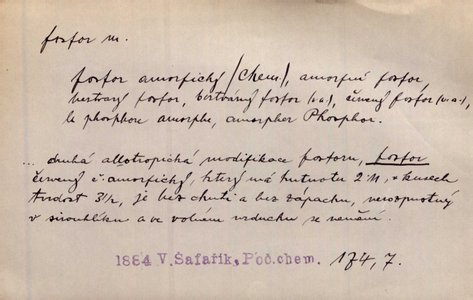 fosfor m.
fosfor amorfický (chem.), amorfní fosfor,
beztvarý fosfor, beztvárný fosfor (t. a.), červený fosfor (v. a.),
le phosphore amorphe, amorpher Phosphor.
... druhá allotropická modifikace fosforu, fosfor
červený č. amorfický, který má hutnotu 2·11, v kusech
tvrdost 3½, je bez chuti a bez zápachu, nerozpustný
v sirouhlíku a ve volném vzduchu se nemění.
1884 V. Šafařík, Poč. chem. 174, 7.